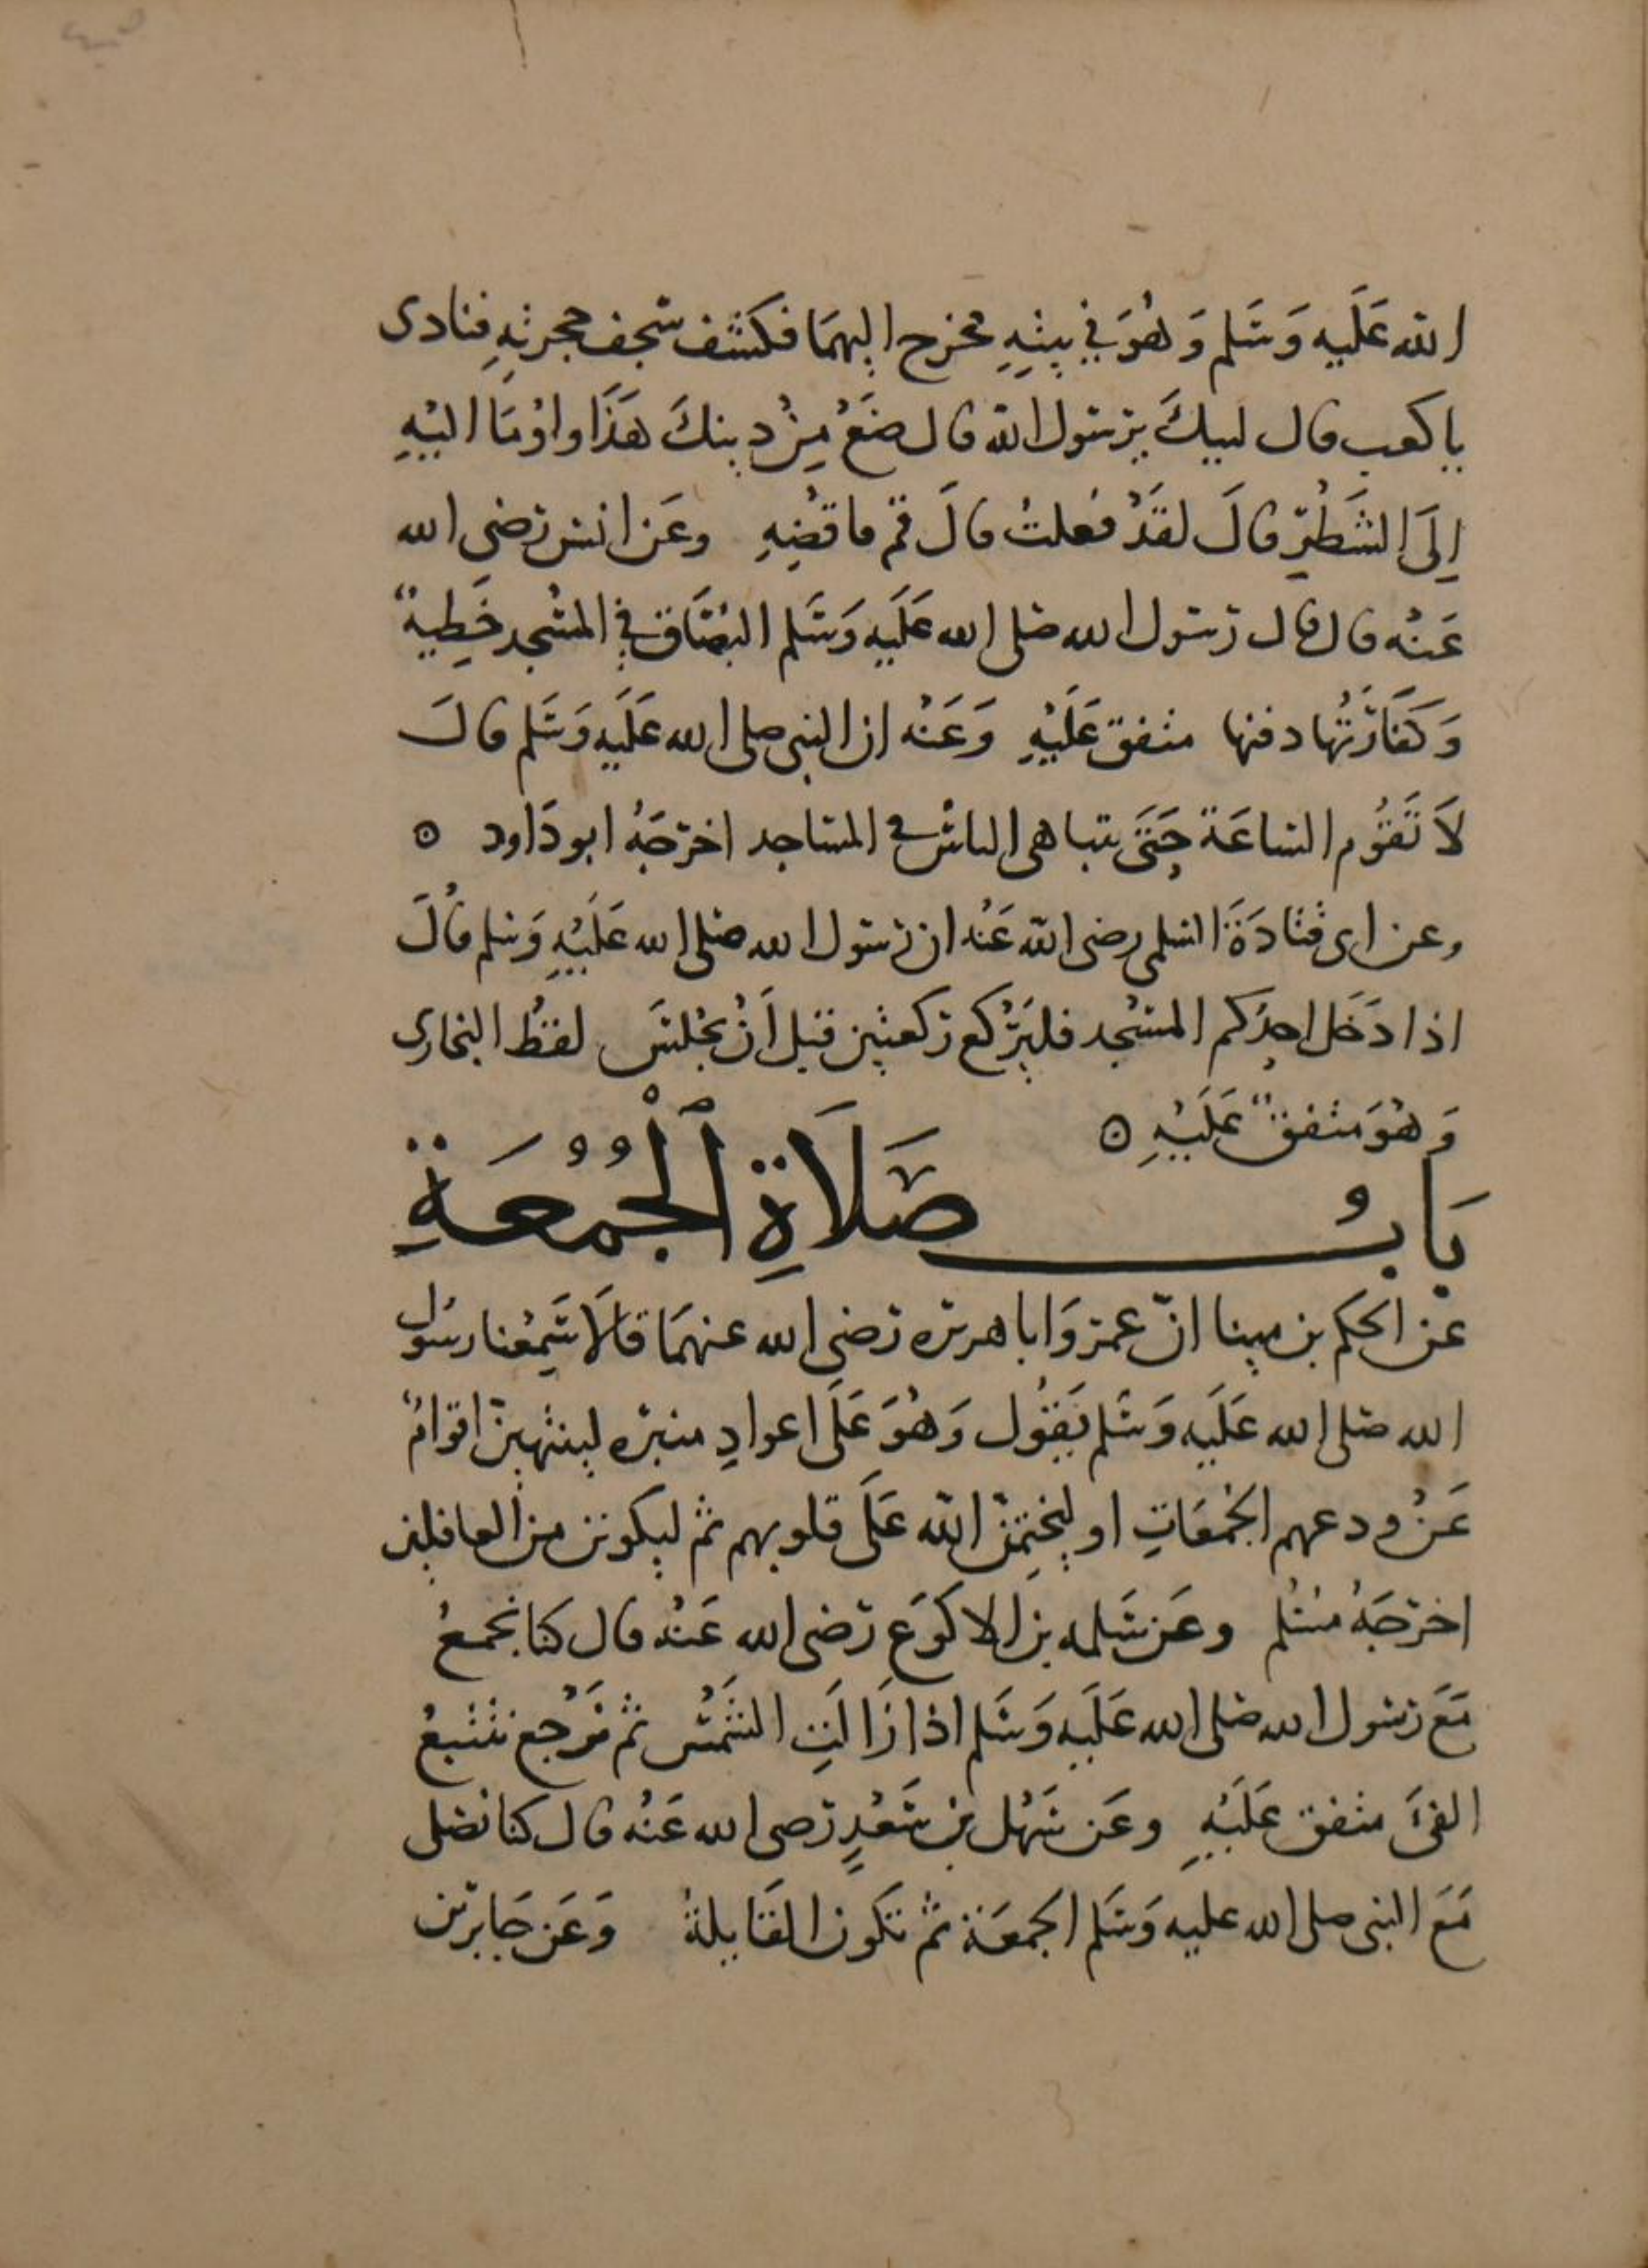 الله عَلَيه وَسَلم وَهُوَ في بيتِهِ فخرج اليهمَا فكشف سجف حجرتهِ فنادى
يا كعب قال لبيكَ يرسول الله قال ضَعْ مِنْ دينكَ هَذَا واوْمَا اليْهِ
اِلَى الشَطْرِ قالَ لقَدْ فعلتُ قالَ قم فاقضِهِ وعَن انس رضي الله
عَنْه قال قال رسول الله صلى الله عَلَيهِ وَسَلم البُصَاق في المسْجد خَطِيةٌ
وَكَفَّارَتُها دفنها متفق عَلَيْهِ وَعَنْه ان النبي صلى الله عَلَيهِ وَسَلم قالَ
لَا تَقوُم الساعَة حَتَى يتباهى الناسُ في المساجد اخرجَهُ ابو دَاود ه
وعن ابى قتَادَةَ السلمى رضى الله عَنْه ان رسول الله صلى الله عَلَيْهِ وَسلم قالَ
اذا دَخَل احدُكم المسْجد فليَرْكع ركعتين قبل اَنْ يجْلسَ لفظُ البخارى
وَهُوَ متفقٌ عَلَيْهِ ه
بَابُ صَلَاةِ الْجُمُعَةِ
عن الحكم بن مينا انّ عمر وَابا هريره رضى الله عنهمَا قالَا سَمِعْنا رسُول
الله صلى الله عَلَيه وَسَلم يَقوُل وَهُوَ عَلَى اعوادِ منبرْه لينتهينّ اقوامٌ
عَنْ ودعهم الجُمعَاتِ او ليَخْتِمَنّ الله عَلَى قلوبهم ثم ليكونن من الغافلين
اخرجَهُ مسْلم وعَن سَلمه بن الاكوَعِ رضى الله عَنْه قال كنا نجمعُ
مَعَ رسول الله صلى الله عَلَيهِ وَسَلم اذا زَالَتِ الشَمْس ثم نَرْجع نتتبعُ
الفئَ متفق عَلَيْهِ وعَن سَهْل بن سَعْدٍ رضى الله عَنْه قال كنا نصَلى
مَعَ النبى صلى الله عليه وَسَلم الجمعَة ثم تكون القَايلةُ وَعَن جَابر بن